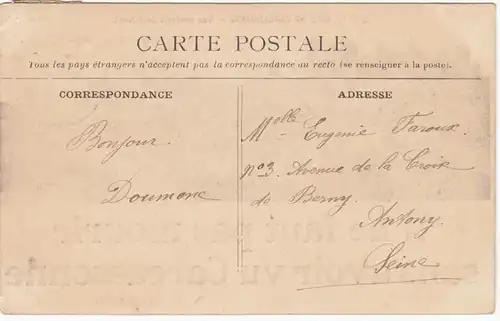 CARTE POSTALE
Tous les pays étrangers n'acceptent pas la correspondance au recto (se renseigner à la poste).
CORRESPONDANCE
Bonjour
Doumenc
ADRESSE
Melle Eugenie Faroux
No 3. Avenue de la Croix
de Berny
Antony
Seine